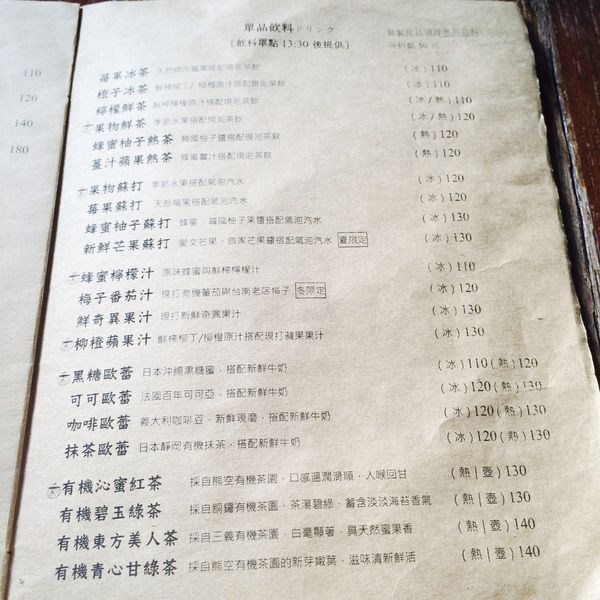 單品飲料ドリンク
[飲料單點 13:30 後提供]
套餐飲品選擇單品飲料
可折抵 50 元
110
120
140
180
莓果冰茶 天然綜合莓果搭配現泡茶飲 (冰) 110
橙子冰茶 鮮榨柳丁/柳橙原汁搭配現泡茶飲 (冰) 110
檸檬鮮茶 鮮榨檸檬原汁搭配現泡茶飲 (冰/熱) 110
果物鮮茶 季節水果搭配現泡茶飲 (冰/熱) 120
蜂蜜柚子熱茶 韓國柚子醬搭配現泡茶飲 (熱) 120
薑汁蘋果熱茶 蜂蜜薑汁搭配現泡茶飲 (熱) 120
果物蘇打 季節水果搭配氣泡汽水 (冰) 120
莓果蘇打 天然莓果搭配氣泡汽水 (冰) 120
蜂蜜柚子蘇打 蜂蜜、韓國柚子果醬搭配氣泡汽水 (冰) 130
新鮮芒果蘇打 愛文芒果、自家芒果醬搭配氣泡汽水 夏限定 (冰) 130
蜂蜜檸檬汁 原味蜂蜜與鮮榨檸檬汁 (冰) 110
梅子番茄汁 現打有機蕃茄與台南老店梅子 冬限定 (冰) 120
鮮奇異果汁 現打新鮮奇異果汁 (冰) 130
柳橙蘋果汁 鮮榨柳丁/柳橙原汁搭配現打蘋果果汁 (冰) 130
黑糖歐蕾 日本沖繩黑糖蜜,搭配新鮮牛奶 (冰) 110 (熱) 120
可可歐蕾 法國百年可可亞,搭配新鮮牛奶 (冰) 120 (熱) 130
咖啡歐蕾 義大利咖啡豆,新鮮現磨,搭配新鮮牛奶 (冰) 120 (熱) 130
抹茶歐蕾 日本靜岡有機抹茶,搭配新鮮牛奶 (冰) 120 (熱) 130
有機沁蜜紅茶 採自熊空有機茶園,口感溫潤滑順,入喉回甘 (熱|壺) 130
有機碧玉綠茶 採自銅鑼有機茶園,茶湯碧綠,蓄含淡淡海苔香氣 (熱|壺) 130
有機東方美人茶 採自三義有機茶園,白毫顯著,具天然蜜果香 (熱|壺) 140
有機青心甘綠茶 採自熊空有機茶園的新芽嫩葉,滋味清新鮮活 (熱|壺) 140